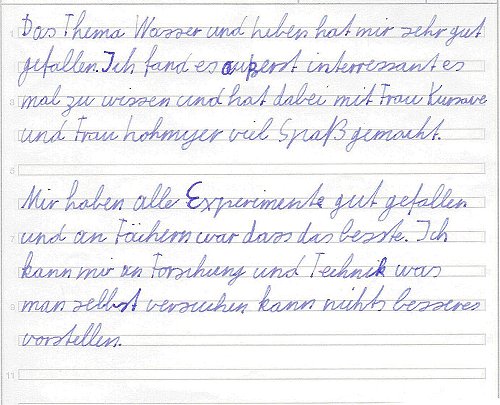 Das Thema Wasser und heben hat mir sehr gut
gefallen. Ich fand es außerst interressant es
mal zu wissen und hat dabei mit Frau Kursave
und Frau hohmyer viel Spaß gemacht.
Mir haben alle Experimente gut gefallen
und an Fächern war dass das besste. Ich
kann mir an Forschung und Technik was
man selbst versuchen kann nichts besseres
vorstellen.